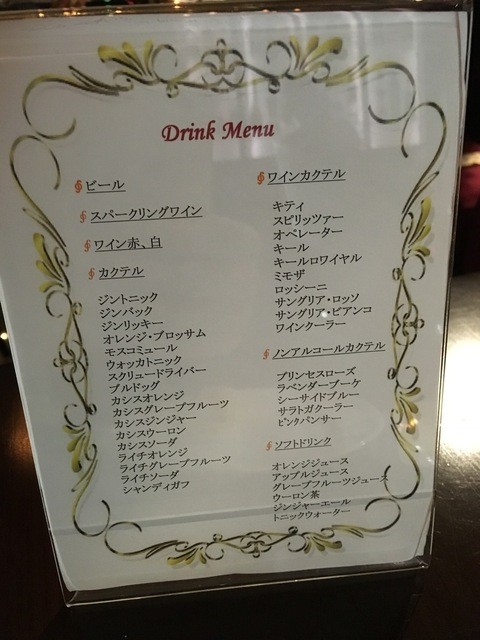 Drink Menu
∮ ビール
∮ スパークリングワイン
∮ ワイン赤、白
∮ カクテル
ジントニック
ジンバック
ジンリッキー
オレンジ・ブロッサム
モスコミュール
ウォッカトニック
スクリュードライバー
ブルドッグ
カシスオレンジ
カシスグレープフルーツ
カシスジンジャー
カシスウーロン
カシスソーダ
ライチオレンジ
ライチグレープフルーツ
ライチソーダ
シャンディガフ
∮ ワインカクテル
キティ
スピリッツァー
オペレーター
キール
キールロワイヤル
ミモザ
ロッシーニ
サングリア・ロッソ
サングリア・ビアンコ
ワインクーラー
∮ ノンアルコールカクテル
プリンセスローズ
ラベンダーブーケ
シーサイドブルー
サラトガクーラー
ピンクパンサー
∮ ソフトドリンク
オレンジジュース
アップルジュース
グレープフルーツジュース
ウーロン茶
ジンジャーエール
トニックウォーター